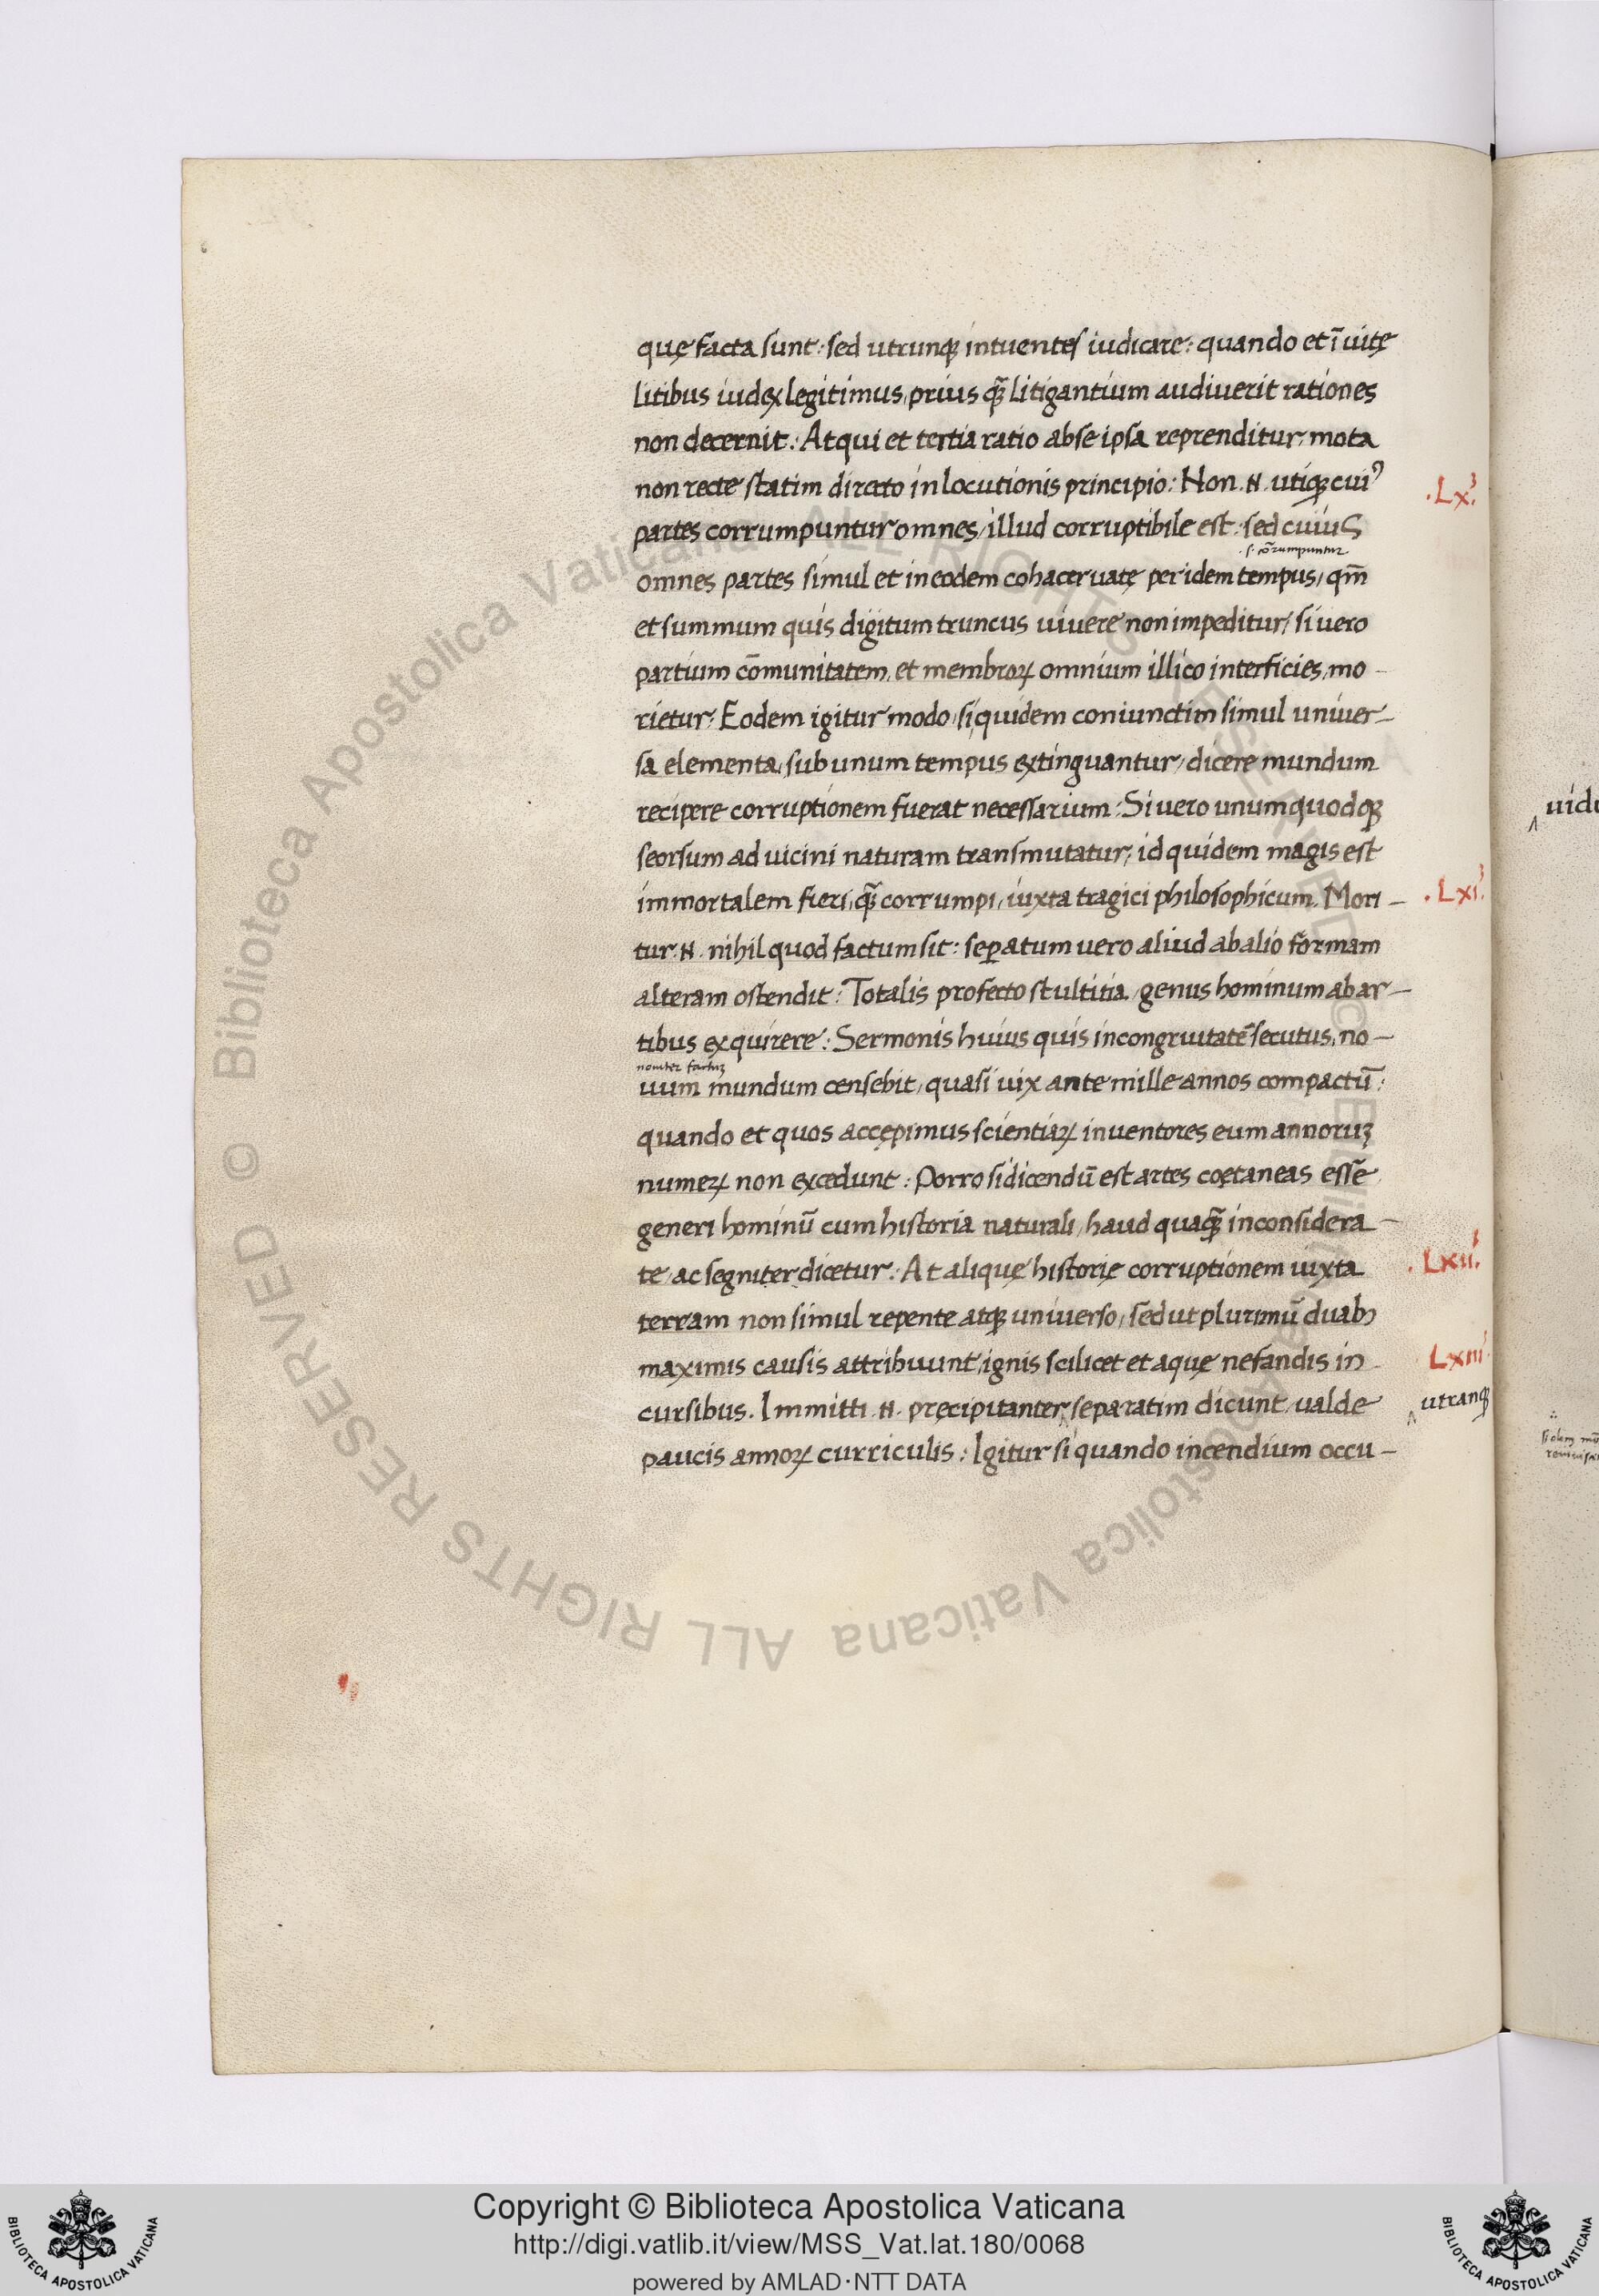 quę facta sunt: sed utrunqꝫ intuentes iudicare: quando et ī uitę
litibus iudex legitimus, prius qꝫ̃ litigantium audiuerit rationes
non decernit: Atqui et tertia ratio abse ipsa reprenditur, mota
non recte statim directo in locutionis principio: Non .N. utiqꝫ cuiꝰ
.Lx.
partes corrumpuntur omnes, illud corruptibile est: sed cuius
.s. cōrumpuntur
omnes partes simul et in eodem cohaceruatę per idem tempus, qm̄
et summum quis digitum truncus uiuere non impeditur, si uero
partium cōmunitatem, et membroꝝ omnium illico interficies, mo-
rietur: Eodem igitur modo, siquidem coniunctim simul uniuer-
sa elementa, sub unum tempus extinguantur, dicere mundum
recipere corruptionem fuerat necessarium: Si uero unumquodqꝫ
seorsum ad uicini naturam transmutatur, id quidem magis est
immortalem fieri, qꝫ̃ corrumpi, iuxta tragici philosophicum. Mori-
.Lxi.
tur .N. nihil quod factum sit: seꝑatum uero aliud ab alio formam
alteram ostendit: Totalis profecto stultitia, genus hominum ab ar-
tibus exquirere: Sermonis huius quis incongruitatē secutus, no-
nouiter factuꝫ
uum mundum censebit, quasi uix ante mille annos compactū:
quando et quos accępimus scientiaꝝ inuentores eum annoruꝫ
numeꝝ non excedunt: Porro si dicendū est artes coętaneas essē
generi hominū cum historia naturali, haud quaqꝫ̃ inconsidera-
te, ac segniter dicetur: At alique historię corruptionem iuxta
.Lxii.
terram non simul repente atqꝫ uniuerso, sed ut plurimū duabꝫ
maximis causis attribuunt, ignis scilicet et aquę nefandis in-
Lxiii.
cursibus. Immitti .N. pręcipitanter separatim dicunt, ualde
utranqꝫ
paucis annoꝝ curriculis: Igitur si quando incendium occu-
uidu
Copyright © Biblioteca Apostolica Vaticana
http://digi.vatlib.it/view/MSS_Vat.lat.180/0068
powered by AMLAD·NTT DATA
BIBLIOTECA APOSTOLICA VATICANA
BIBLIOTECA APOSTOLICA VATICANA
© Biblioteca Apostolica Vaticana ALL RIGHTS RESERVED © Biblioteca Apostolica Vaticana ALL RIGHTS RESERVED